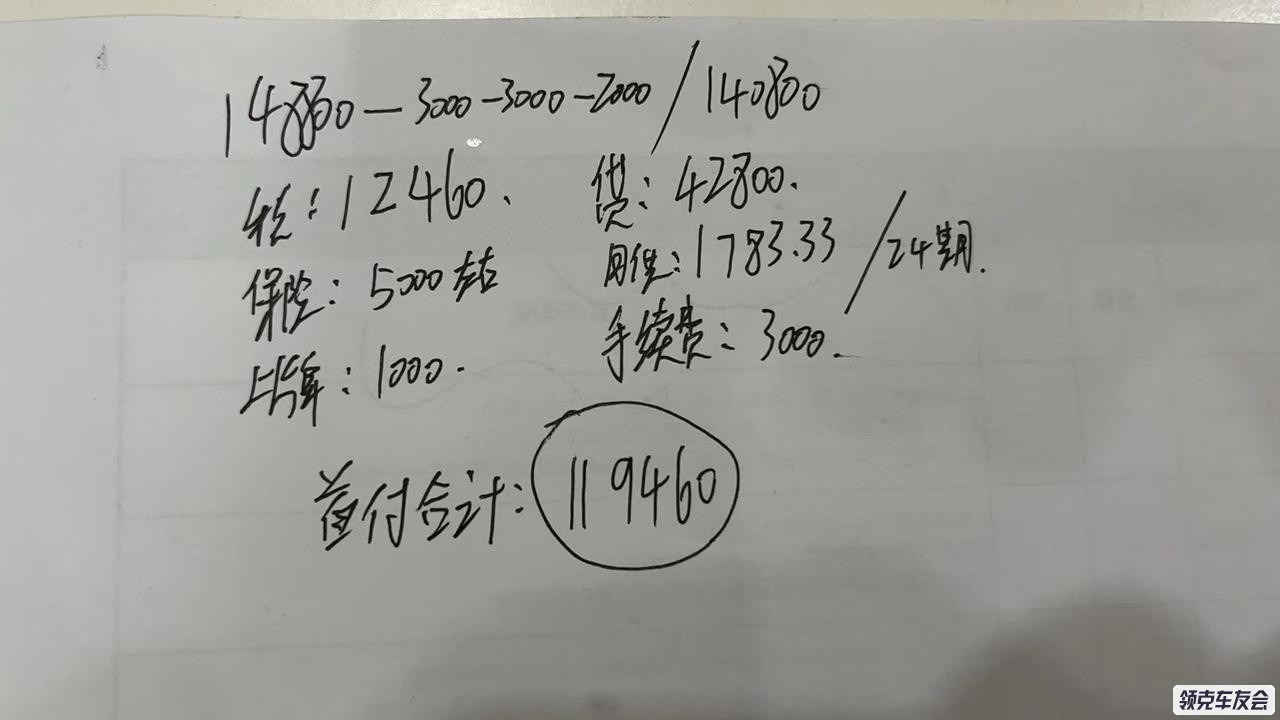 148800-3000-3000-2000/140800
税：12460.
贷：42800.
保险：5000左右
月供：1783.33/24期.
上牌：1000.
手续费：3000.
首付合计：119460
领克车友会